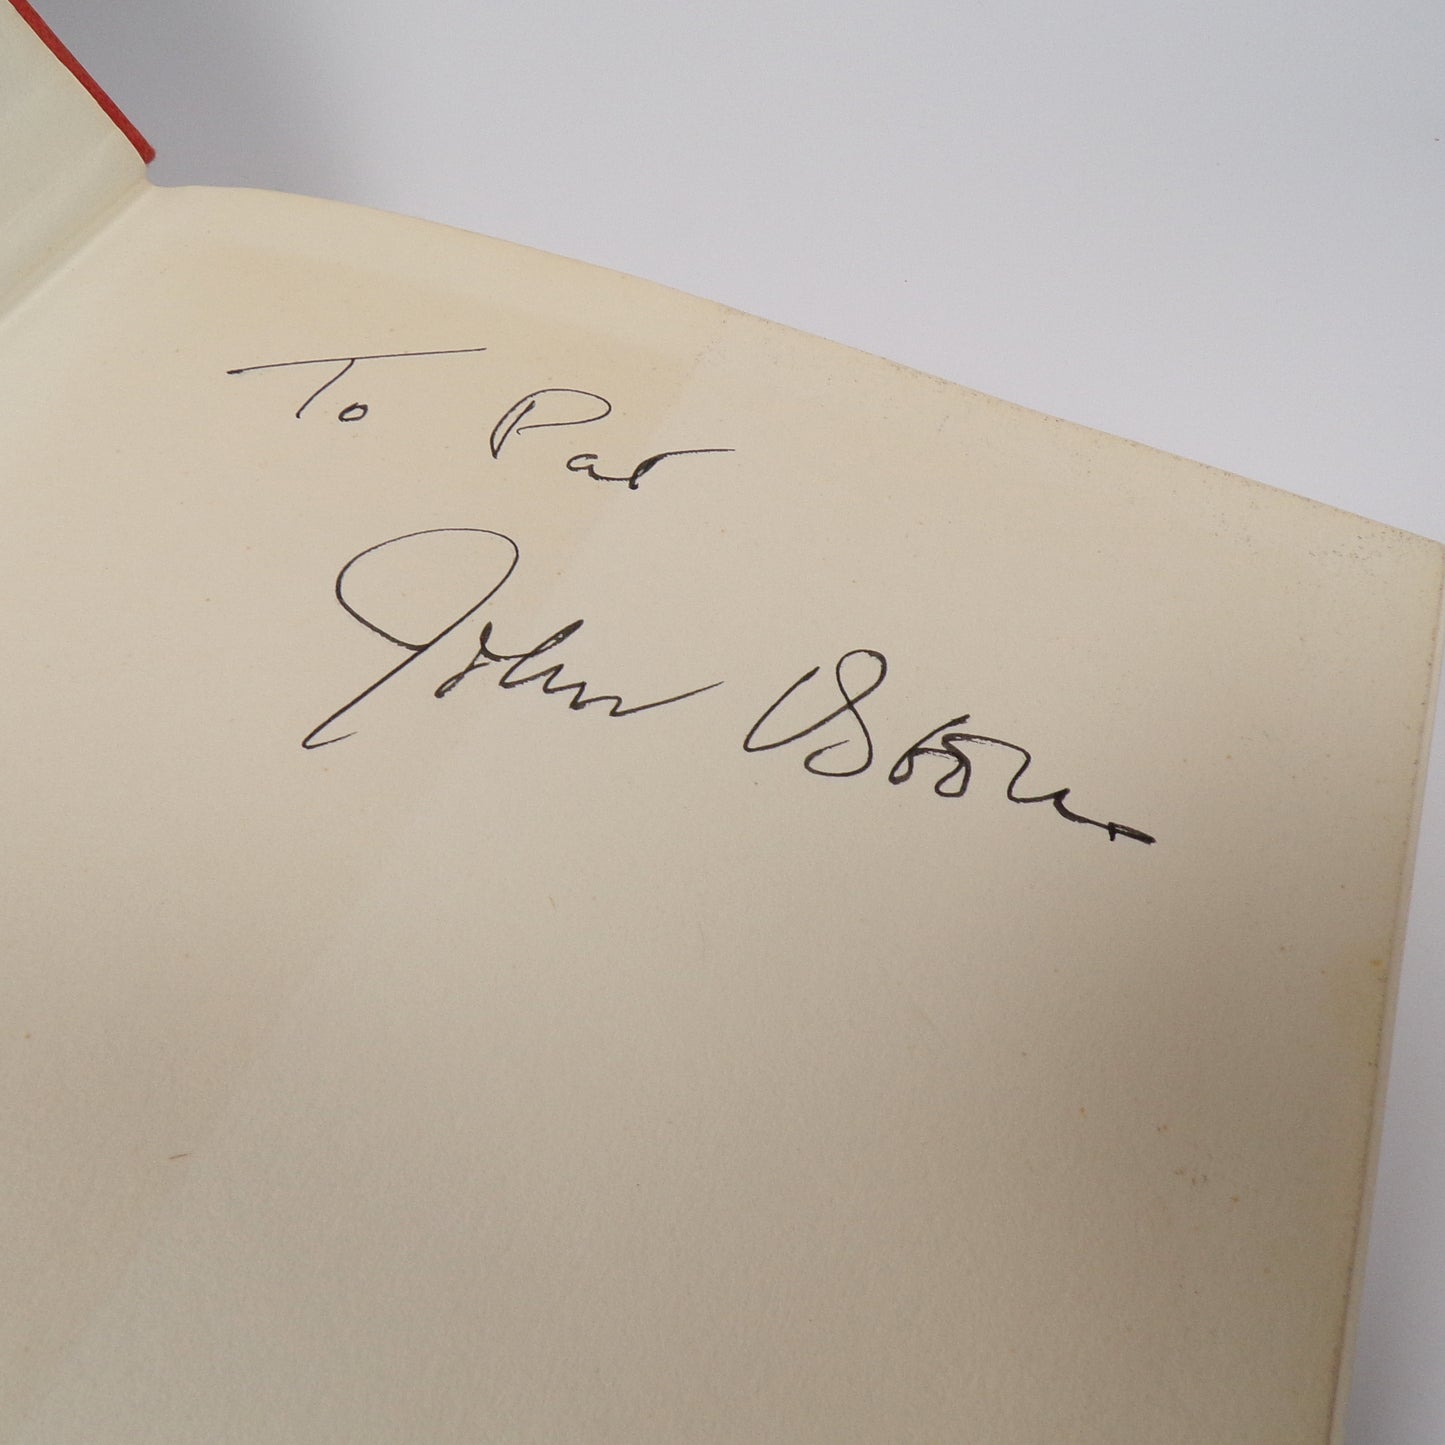 To Pat
John Osborne